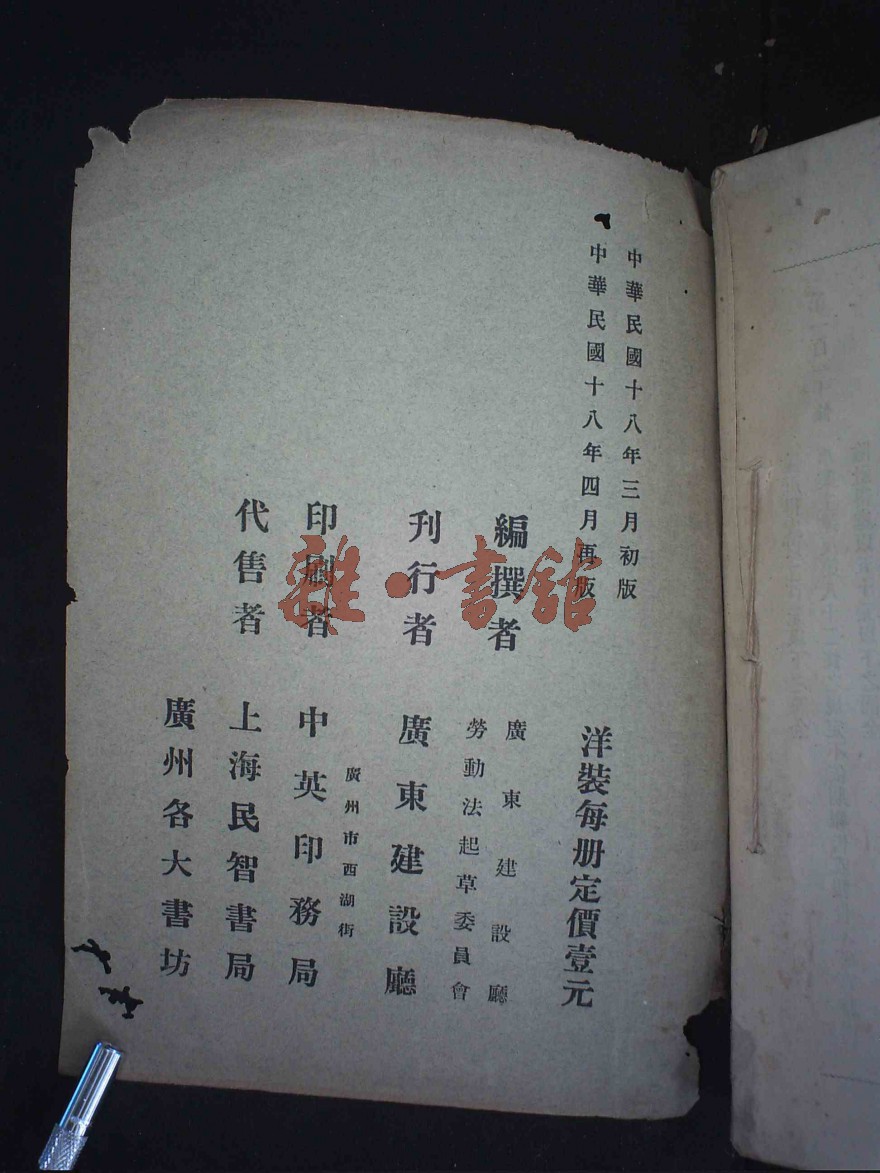 中華民國十八年三月初版
中華民國十八年四月再版
洋裝每册定價壹元
編撰者
廣東建設廳
勞動法起草委員會
刊行者
廣東建設廳
印刷者
廣州市西湖街
中英印務局
代售者
上海民智書局
廣州各大書坊
雜·書館